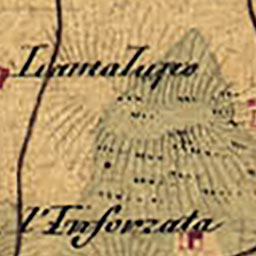 Lamalupo
l'Inforzata